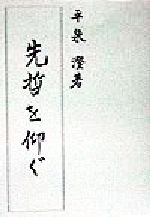 平泉 澄著
先哲を仰ぐ